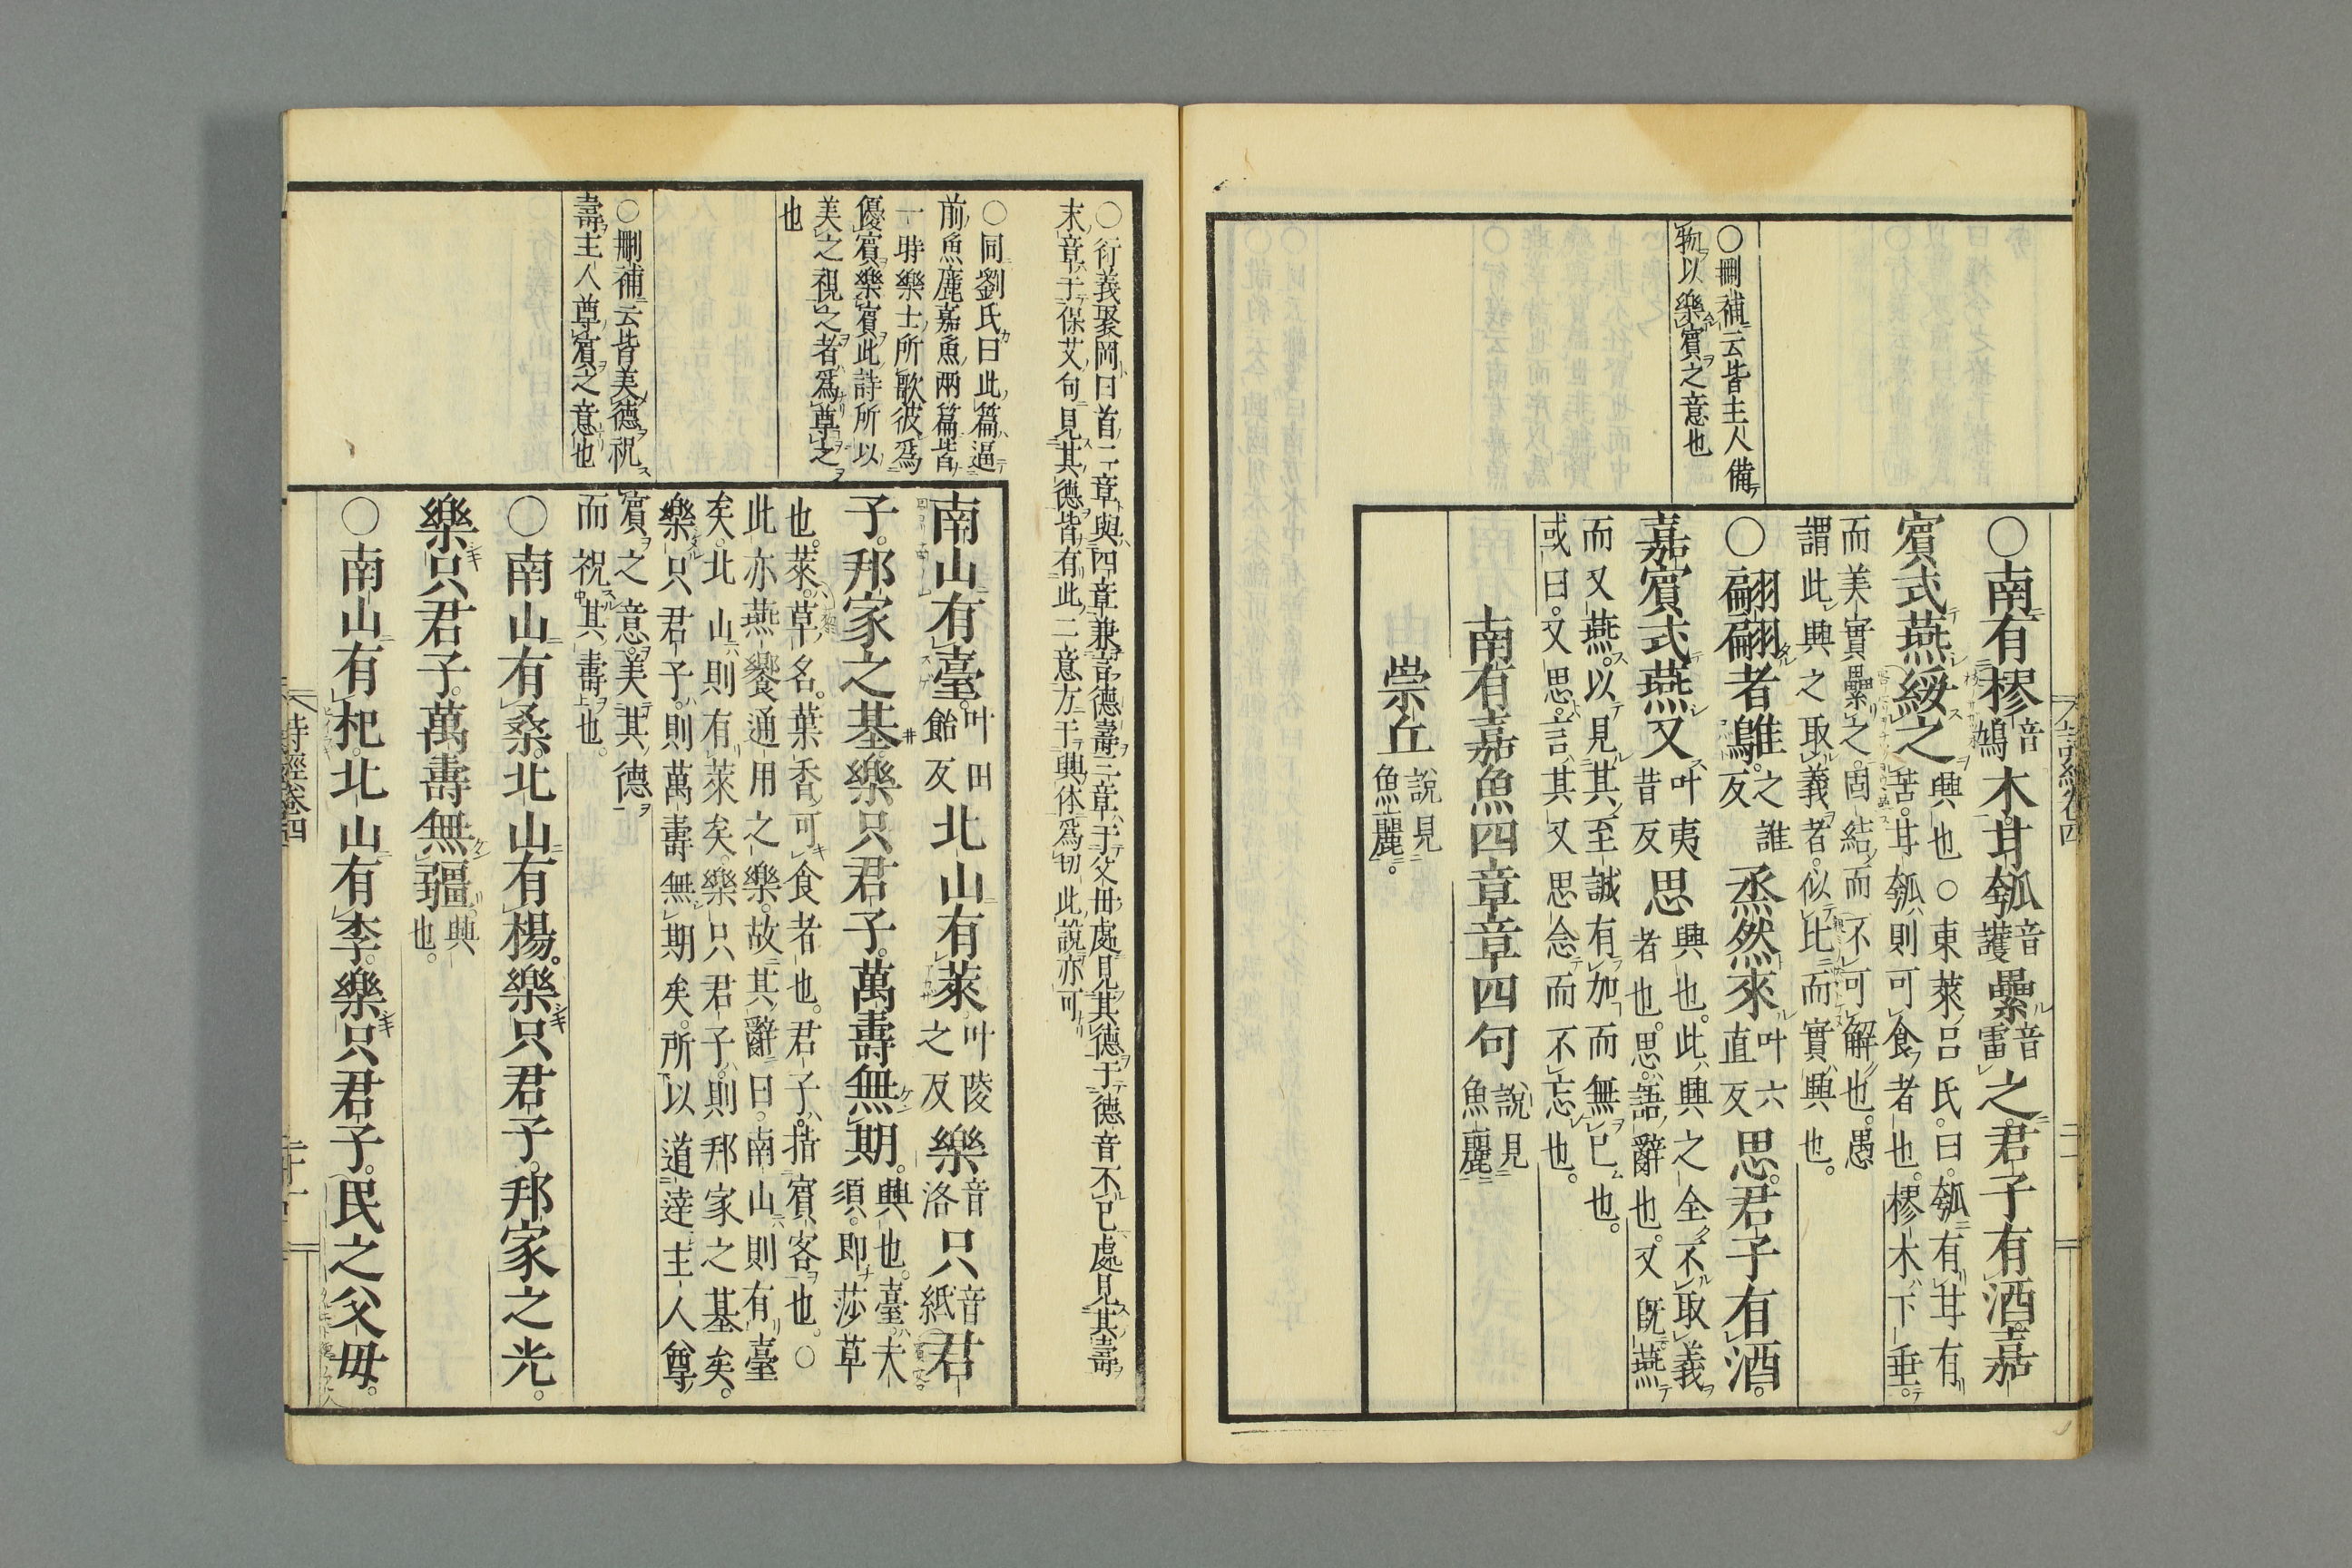 ○刪補云皆主人備
物以樂賓之意也
○南有樛音鳩木甘瓠音護纍音雷之君子有酒嘉
賓式燕綏之興也○東萊呂氏曰瓠有甘有
苦甘瓠則可食者也樛木下垂
而美實纍之固結而不可解也愚
謂此興之取義者似比而實興也
○翩翩者鵻之誰反烝然來叶六直反思君子有酒
嘉賓式燕又叶夷昔反思興也此興之全不取義
者也思語辭也又旣燕
而又燕以見其至誠有加而無已也
或曰又思言其又思念而不忘也
南有嘉魚四章章四句說見魚麗
崇丘說見魚麗
○衍義聚岡曰首二章與四章兼言德壽三章于父毋處見其德于德音不已處見其壽
末章于保艾句見其德皆有此二意方于興体爲切此說亦可
○同劉氏曰此篇逼
前魚麗嘉魚兩篇皆
一時樂士所歌彼爲
優賓樂賓此詩所以
美之視之者爲尊之
也
○刪補云皆美德祝
壽主人尊賓之意也
南山有臺叶田飴反北山有萊叶陵之反樂音洛只音紙君
子邦家之基樂只君子萬壽無期興也臺夫須即莎草
也萊草名葉香可食者也君子指賓客也○
此亦燕饗通用之樂故其辭曰南山則有臺
矣北山則有萊矣樂只君子則邦家之基矣
樂只君子則萬壽無期矣所以道達主人尊
賓之意美其德
而祝其壽也
○南山有桑北山有楊樂只君子邦家之光
樂只君子萬壽無疆興也
○南山有杞北山有李樂只君子民之父毋
詩經卷四